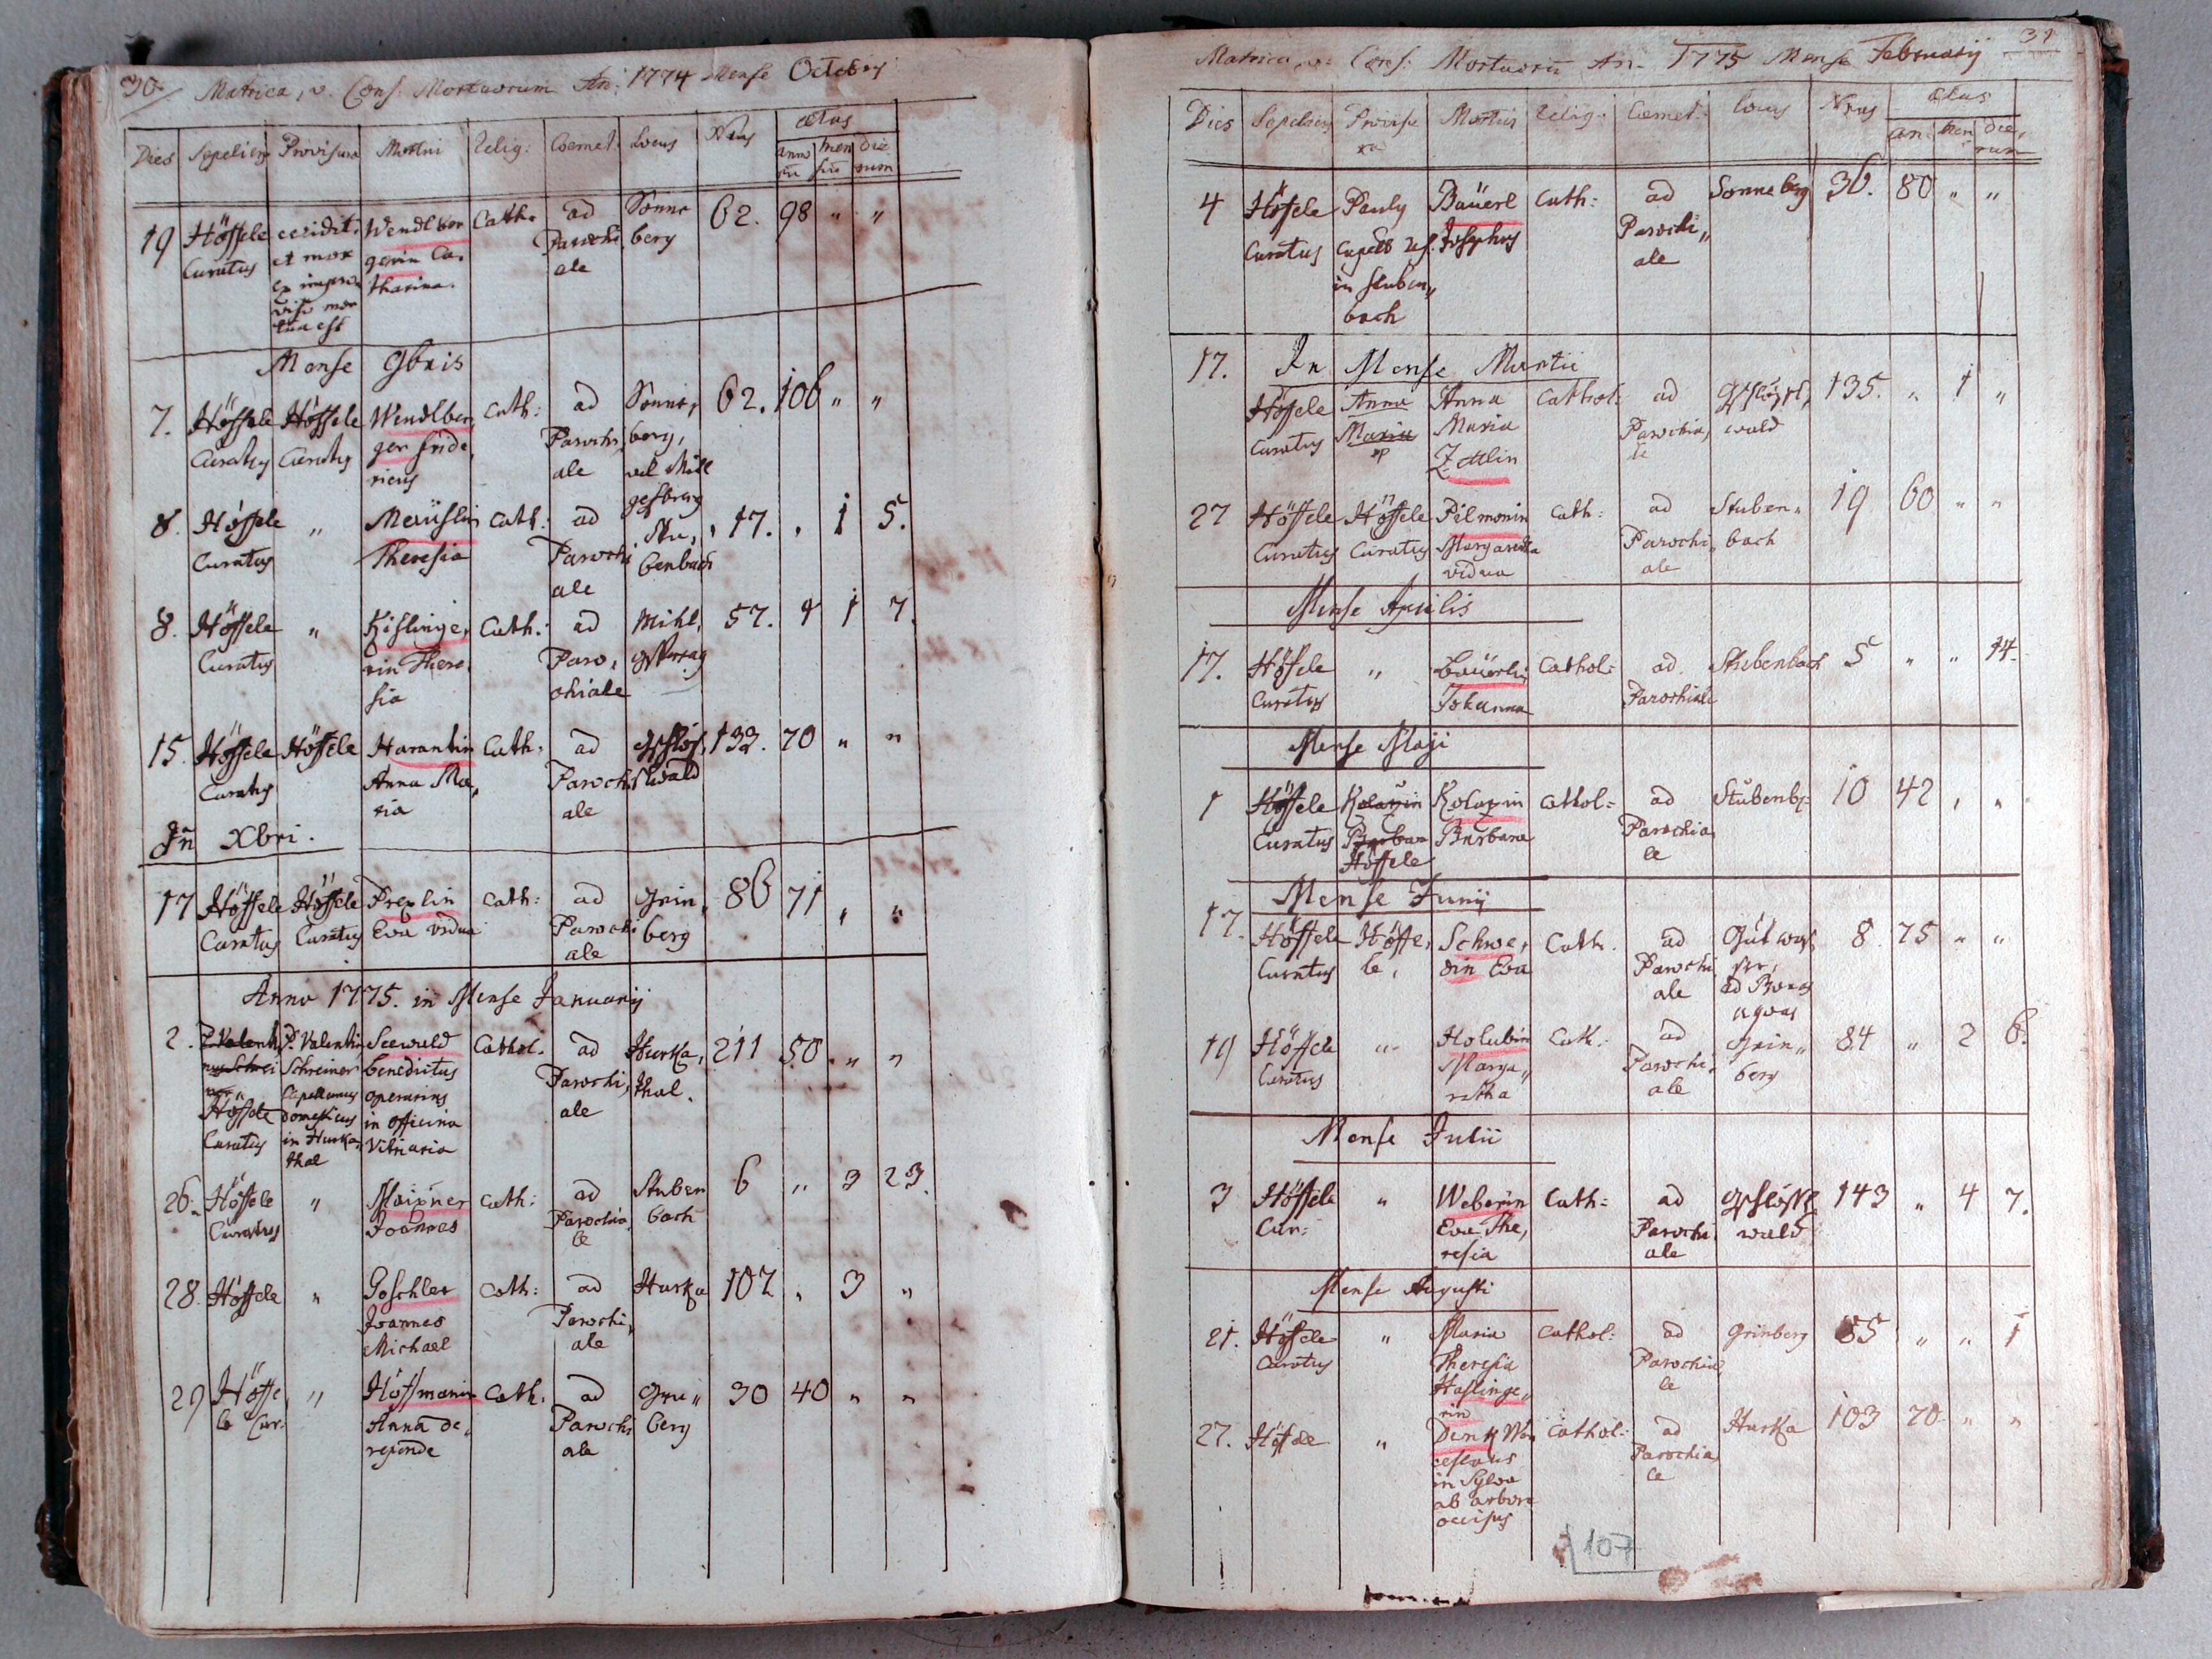 30
Matrica, v. Cons. Mortuorum An: 1774 Mense Octobris
Dies Sepeliens Provisura Mortui Relig: Coemet. Locus Nrus Ætas
annorū mensiū dierum
19 Höffele Curatus
cecidit et mox ex improviso mortua est
Wendlbergerin Catharina.
Cath. ad Parochiale Sonneberg 62. 98 " "
Mense 9bris
7. Höffele Curatus Höffele Curatus
Wendlberger Fridericus
Cath: ad Parochiale
Sonneberg, vel Millgespreng
62. 106 " "
8. Höffele Curatus "
Meüslin Theresia
Cath: ad Parochiale Stubenbach 17. " 1 5.
8. Höffele Curatus "
Kislingerin Theresia
Cath: ad Parochiale
Mihl,
57. 4 1 7.
15. Höffele Curatus Höffele
Harantin Anna Maria
Cath. ad Parochiale Gsslöslwald 132. 70 " "
In Xbri.
17 Höffele Curatus Höffele Curatus
Prexlin Eva vidua
Cath: ad Parochiale Grinberg 86 71 " "
Anno 1775. in Mense Januarij
2. P. Valentinus Schreiner
Höffele Curatus
P. Valentin Schreiner Capellanus domesticus in Hurkathal
Seewald benedictus operarius in officina Vitriaria
Cathol. ad Parochiale Hurkathal. 211 50. " "
26. Höffele Curatus "
Maixner Joannes
Cath: ad Parochiale Stubenbach 6 " 3 23.
28. Höffele "
Goschler Joannes Michael
Cath: ad Parochiale Hurka 107 " 3 "
29 Höffele Cur. "
Hoffmanin Anna de repende
Cath. ad Parochiale Griberg 30 40 " "
31
Matrica, v. Cons: Mortuorū An. 1775 Mense Februarij
Dies Sepeliens Provisura Mortui Relig. Coemet. Locus Nrus Ætas
an. men dierum
4 Höffele Curatus
Pauly Capell in Stubenbach
Bäuerl Josephus
Cath: ad Parochiale Sonneberg 36. 80 " "
In Mense Martii
17. Höffele Curatus
Anna Maria
Anna Maria Zettlin
Cathol: ad Parochiale Gsslösslwald 135. " 1 "
27 Höffele Curatus Höffele Curatus
Pilmonin Margaretta vidua
Cath: ad Parochiale Stubenbach 19 60 " "
Mense Aprilis
17. Höffele Curatus "
Bäuerlin Johanna
Cathol: ad Parochiale Stubenbach 5 " " 14.
Mense Maji
1 Höffele Curatus
Kolaxin Barbara
Höffele
Kolaxin Barbara
Cathol: ad Parochiale Stubenb: 10 42 " "
Mense Junij
17. Höffele Curatus Höffele,
Schwedin Eva
Cath. ad Parochiale
Gutwasser, ad Bonas aquas
8 75 " "
19 Höffele Curatus "
Holubin Margaretha
Cath: ad Parochiale Grinberg 84 " 2 6.
Mense Julii
3 Höffele Cur: "
Weberin Eva Theresia
Cath: ad Parochiale Gsslösslwald 143 " 4 7.
Mense Augusti
21. Höffele Curatus "
Maria Theresia Haslingerin
Cathol: ad Parochiale Grinberg 85 " " 1
27. Höffele "
Denk Wenceslaus in Sylva ab arbore occisus
Cathol: ad Parochiale Hurka 103 70 " "
107